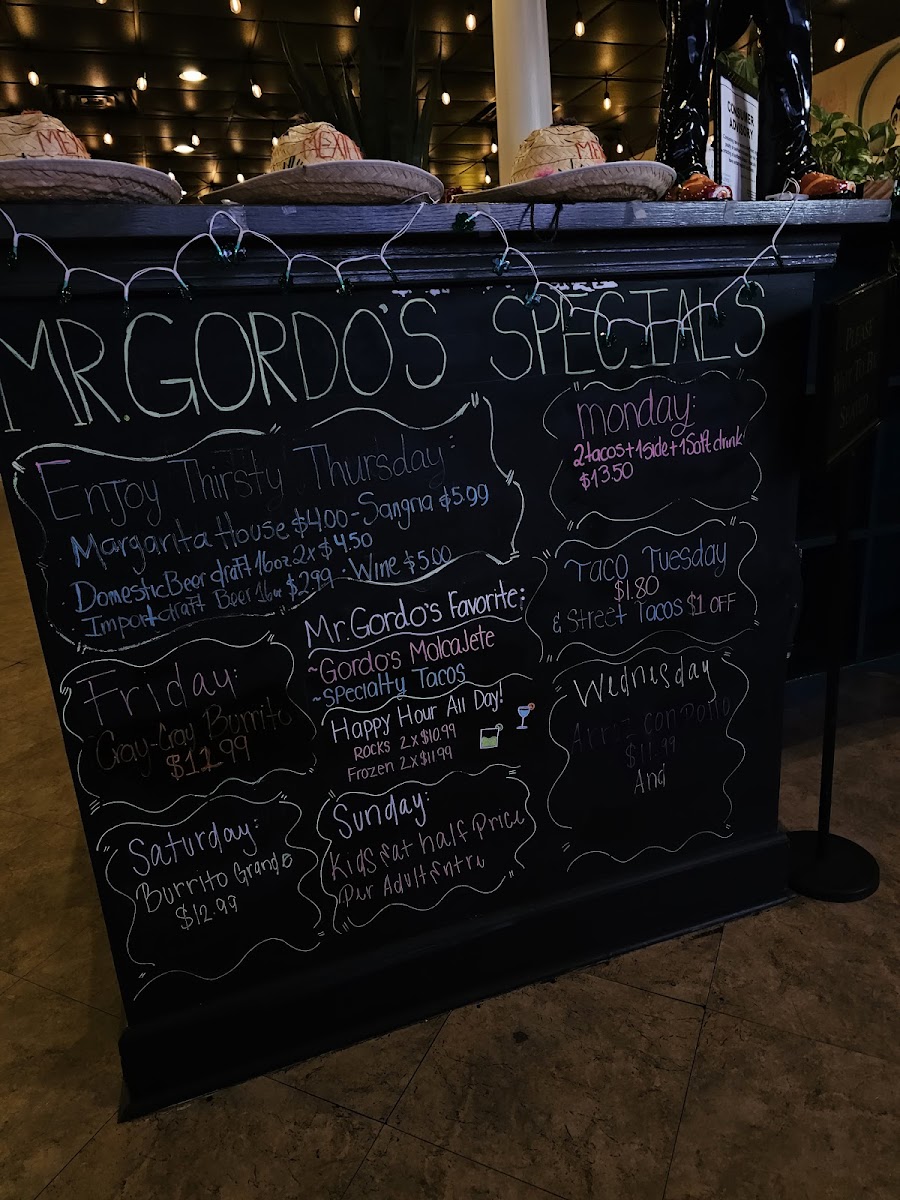 MEXI
MEXI
ME
CONSUMER
ADVISORY
PLEASE
WAIT TO BE
SEATED
MR.GORDO'S SPECIALS
Enjoy Thirsty Thursday:
Margarita House $4.00-Sangria $5.99
Domestic Beer draft 16oz 2x$4.50
Import draft Beer 16oz $2.99 · Wine $5.00
Monday:
2tacos+1side+1Soft drink
$13.50
Taco Tuesday
$1.80
& Street Tacos $1 OFF
Wednesday
Arroz con Pollo
$11.99
And
Mr.Gordo's Favorite:
~Gordo's Molcajete
~Specialty Tacos
Happy Hour All Day!
Rocks 2x$10.99
Frozen 2x$11.99
Friday:
Cray-Cray Burrito
$11.99
Saturday:
Burrito Grande
$12.99
Sunday:
Kids Eat half Price
Per Adult Entry